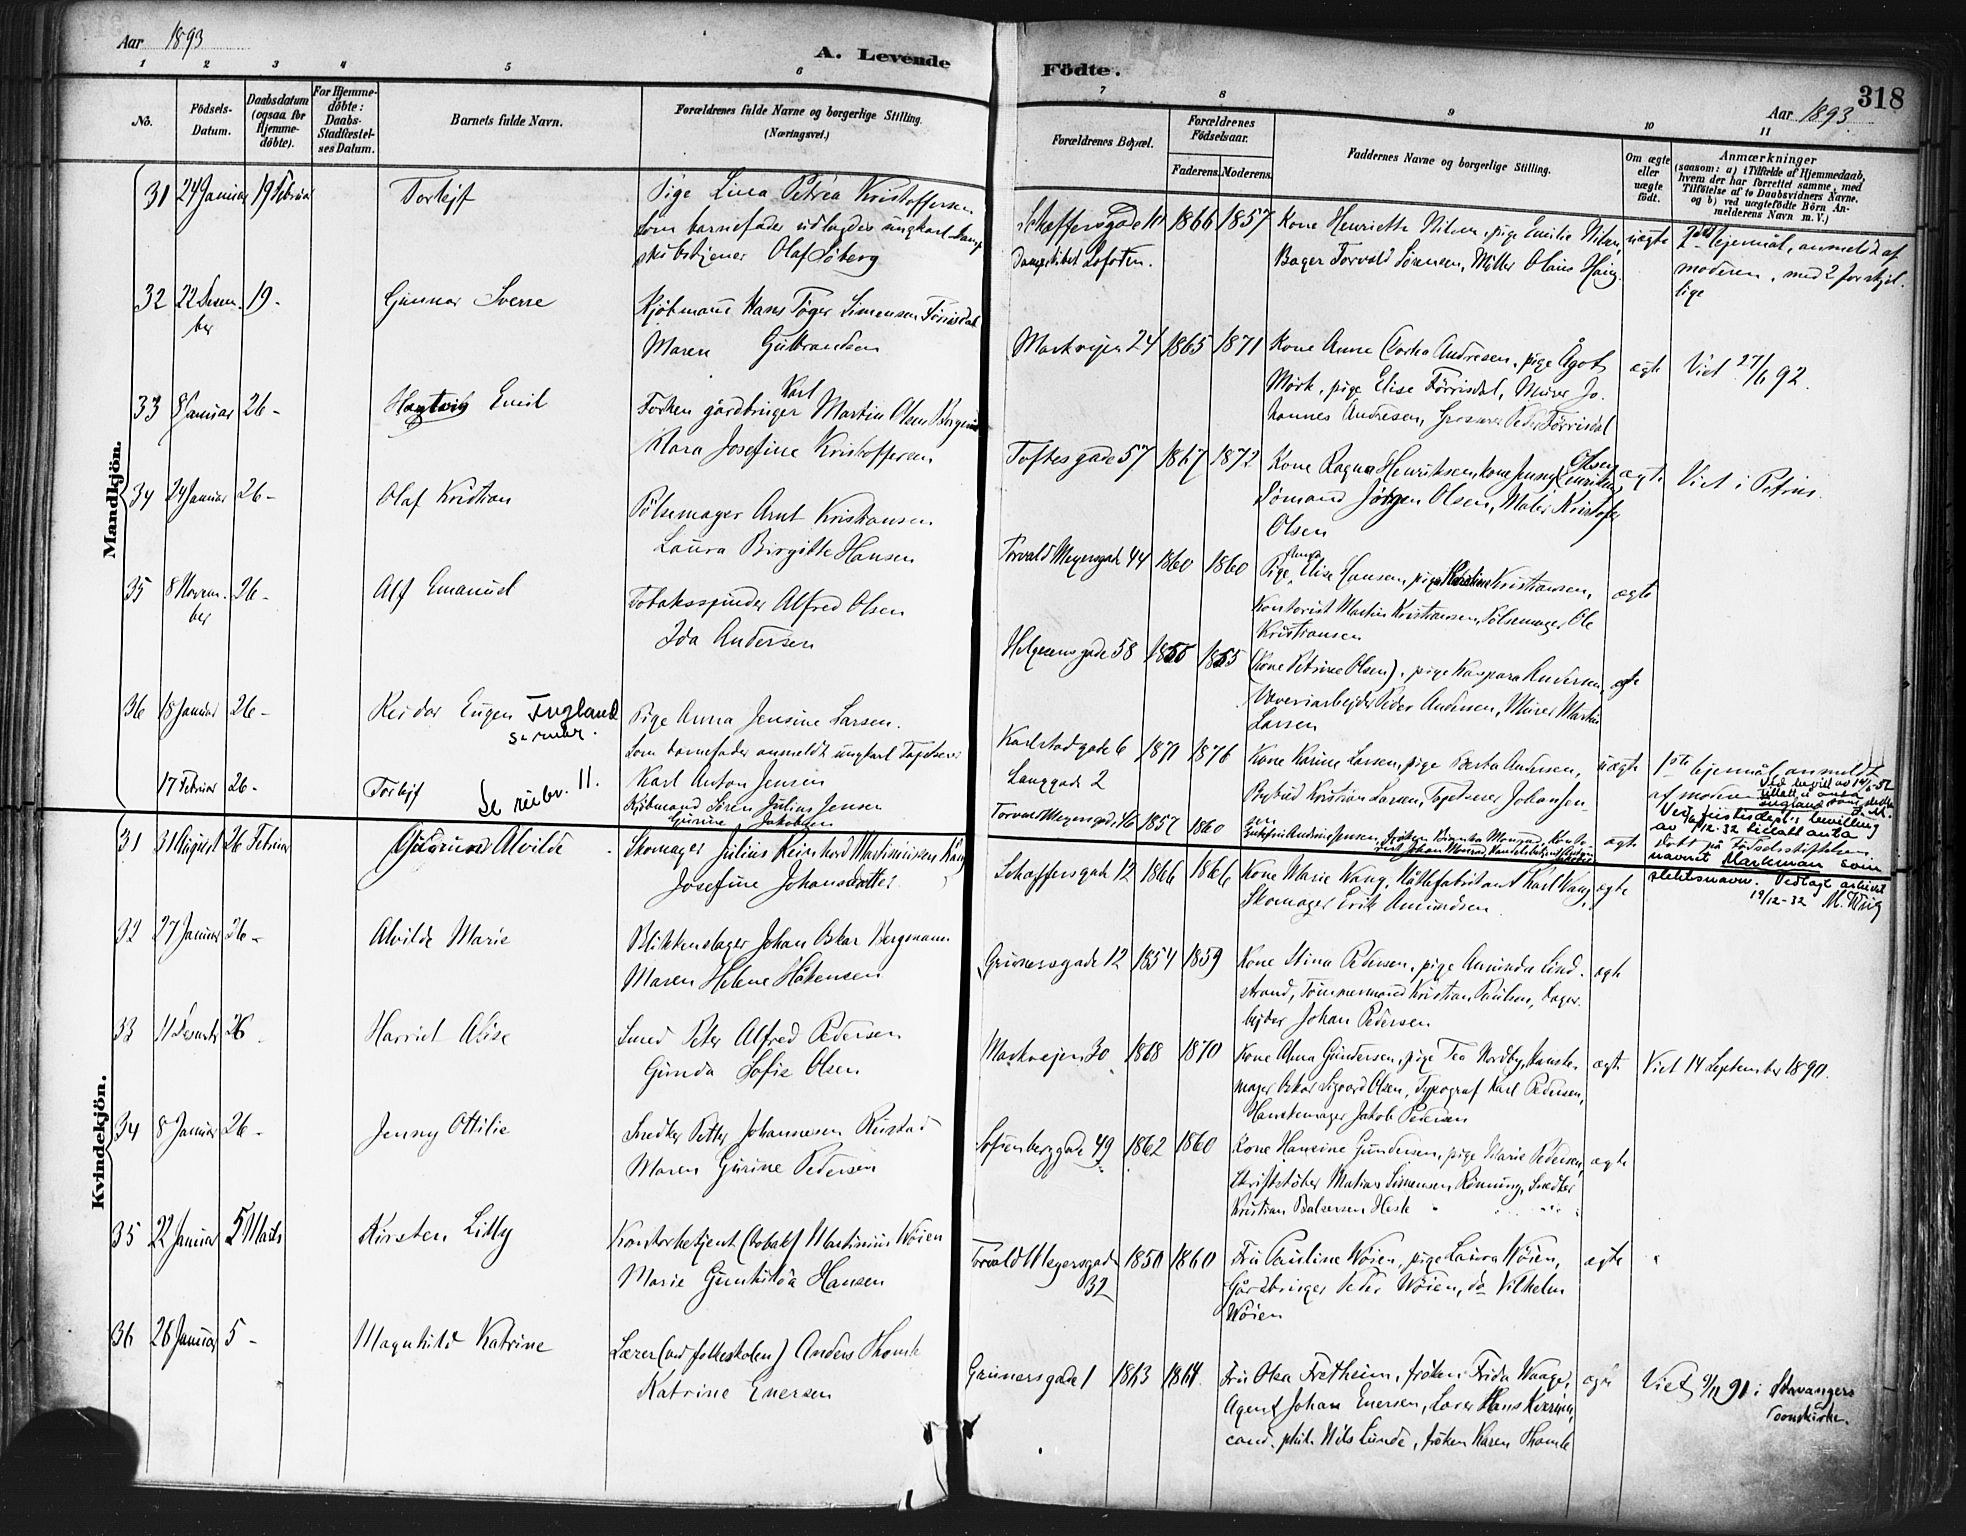 Aar 1893
A. Levende
Födte.
Aar 1893
318
1 2 3 4 5 6 7 8 9 10 11
No.
Födsels-
Datum.
Daabsdatum
(ogsaa for
Hjemme-
döbte).
For Hjemme-
döbte:
Daabs-
Stadfæstel-
ses Datum.
Barnets fulde Navn.
Forældrenes fulde Navne og borgerlige Stilling.
(Næringsvei.)
Forældrenes Bopæl.
Forældrenes
Födselsaar.
Faderens. Moderens.
Faddernes Navne og borgerlige Stilling.
Om ægte
eller
uægte
födt.
Anmærkninger
(saasom: a) i Tilfælde af Hjemmedaab,
hvem der har forrettet samme, med
Tilföielse af to Daabsvidners Navne.
og b) ved uægtefödte Börn An-
melderens Navn m. V.)
Mandkjön.
31 24 Januar 19 Februar
Torleif
Pige Lina Petrea Kristoffersen
som barnefader udlagdes ungkarl Damp
skibstjener Olaf Söberg
Schæffersgade 11 1866 1857
Dampskibet Lofoten.
Kone Henriette Nilsen, pige Emilie Nilsen,
Bager Torvald Sörensen, Möller Olaus Haug.
uægte
moderen, med 2 forskjel.
lige
32 22 Desem-
ber
19-
Gunnar Sverre
Kjöbmand Hans Töger Simensen Förrisdal
Maren Gulbrandsen
Markveien 24 1865 1871
Kone Anne Dorthea Andresen, pige Ågot
Mörk, pige Elise Förrisdal, Murer Jo-
hannes Andresen, Grosserer Peder Förrisdal
ægte
Viet 27/6 92.
33 8 Januar 26-
Hartvig Emil
Forhen gårdbruger Karl Martin Olsen
Klara Josefine Kristoffersen
Toftesgade 57 1867 1872
Kone Ragna Henriksen, kone Jenny Olsen
Sömand Jörgen Olsen, Maler Kristofer
Olsen
ægte
Viet i Petrus.
34 24 Januar 26-
Olaf Kristian
Pölsemager Arnt Kristiansen
Laura Birgitte Hansen
Torvald Meyersgade 44 1860 1860
Pige Elise Hansen, pige Kristiansen,
Kontorist Martin Kristiansen, Pölsemager Ole
Kristiansen
ægte
35 8 Novem-
ber
26-
Alf Emanuel
Tobaksspinder Alfred Olsen
Ida Andersen
Helgesensgade 58 1855 1855
(Kone Petrine Olsen), pige Kaspara Andersen,
Væveriarbejder Peder Andersen, Murer Martin
Larsen
ægte
36 18 Januar 26-
Reidar Eugen England
se rubr. 11.
Pige Anna Jensine Larsen.
som barnefader anmeldt ungkarl Tapetserer
Karl Anton Jensen
Karlstadgade 6 1871 1876
Langgade 2
Kone Karine Larsen, pige Berta Andersen,
Kristian Larsen, Tapetserer Johan Jen-
sen
uægte
1ste lejermål, anmeldt
af moderen
17 Februar 26-
Torleif
Kjöbmand Sören Julius Jensen
Gurine Jakobsen
Torvald Meyersgade 46 1857 1860
ægte
Ved justisdept's bevilling
av 7/12-32 tillatt anta
navnet Markman som
slektsnavn. Vedlagt arkivet
19/12-32
Kvindekjön.
31 31 August 26 Februar
Gudrun Alvilde
Skomager Julius Reinhard Martiniusen
Josefine Johansdatter.
Schæffersgade 12 1866 1866
Kone Marie Wang, Karl Wang,
Skomager Erik Amundsen.
ægte
32 27 Januar 26-
Alvilde Marie
Blikkenslager Johan Oskar Bergmann
Maren Helene Håkensen
Grünersgade 12 1854 1859
Kone Stina Pedersen, pige Amunda Lind-
strand, Tömmermand Kristian Paulsen, Lager-
bejder Johan Pedersen
ægte
33 11 Desember 26
Harriet Alise
Smed Peter Alfred Pedersen
Gunda Sofie Olsen
Markvejen 30 1868 1870
Kone Alma Gundersen, pige Tea Nordby, Hanske-
mager Oskar Sigvard Olsen, Typograf Karl Pedersen,
Hanskemager Jakob Pedersen
ægte
Viet 14 September 1890.
34 8 Januar 26-
Jenny Ottilie
Snedker Petter Johannesen Rustad
Maren Gurine Pedersen
Sofienberggade 49 1862 1860
Kone Hansine Gundersen, pige Marie Pedersen,
Skriftstöber Matias Simensen Rönning, Snedker
Kristian Balsersen Hesle
ægte
35 22 Januar 5 Marts
Kirsten Lilly
Kontorbetjent (tobak) Martinius Wöien
Marie Gunhilda Hansen
Torvald Meyersgade
32
1850 1860
Fru Pauline Wöien, pige Laura Wöien,
Gårdbruger Peder Wöien, do Vilhelm
Wöien
ægte
36 28 Januar 5-
Magnhild Katrine
Lærer (ved folkeskolen) Anders Thomle
Katrine Enersen
Grünersgade 1 1863 1864
Fru Olea Fretheim, fröken Frida Waage,
Agent Johan Enersen, Lærer Hans
cand. phil. Nils Lunde, fröken Karen Thomle
ægte
Viet 9/11 91 i Stavangers
Domkirke.